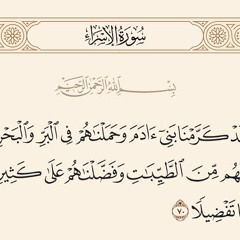 سُورَةُ الإِسْرَاءِ
بِسْمِ اللَّهِ الرَّحْمَٰنِ الرَّحِيمِ
كَرَّمْنَا بَنِي ءَادَمَ وَحَمَلْنَاهُمْ فِي الْبَرِّ وَالْبَحْرِ
هُم مِّنَ الطَّيِّبَاتِ وَفَضَّلْنَاهُمْ عَلَىٰ كَثِيرٍ
تَفْضِيلًا ٧٠